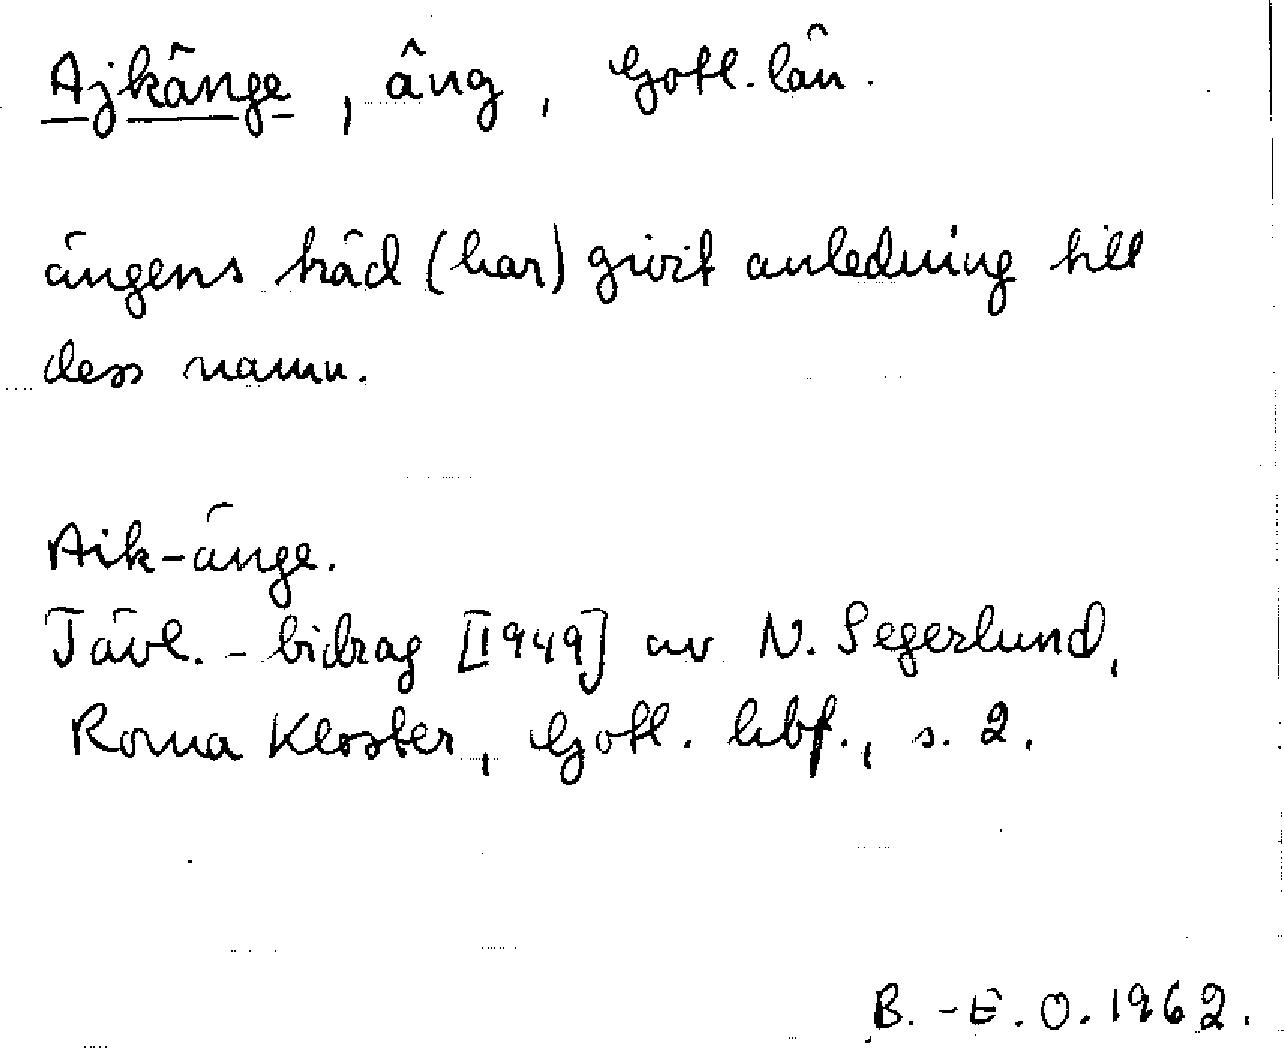 Ajkänge, äng, Gotl. län.
ängens träd (har) givit anledning till
dess namn.
Aik-änge.
Tävl.-bidrag [1949] av N. Segerlund,
Roma Kloster, Gotl. hbf., s. 2.
B.-E. O. 1962.